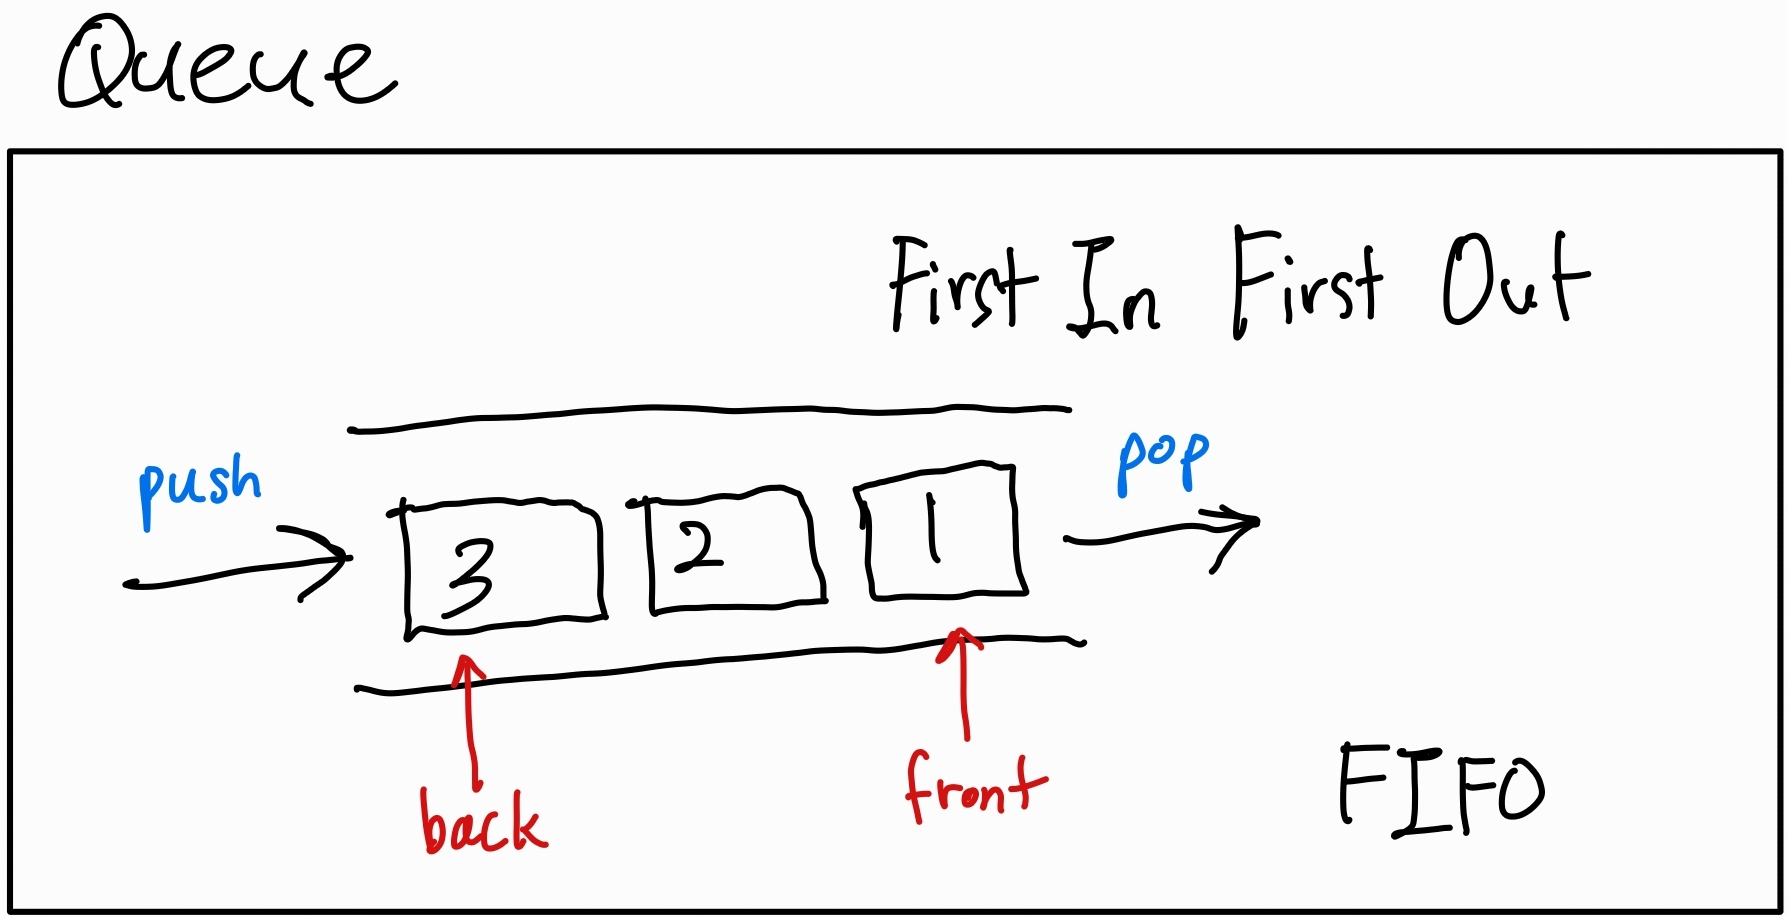 Queue
First In First Out
push
pop
3 2 1
back
front
FIFO